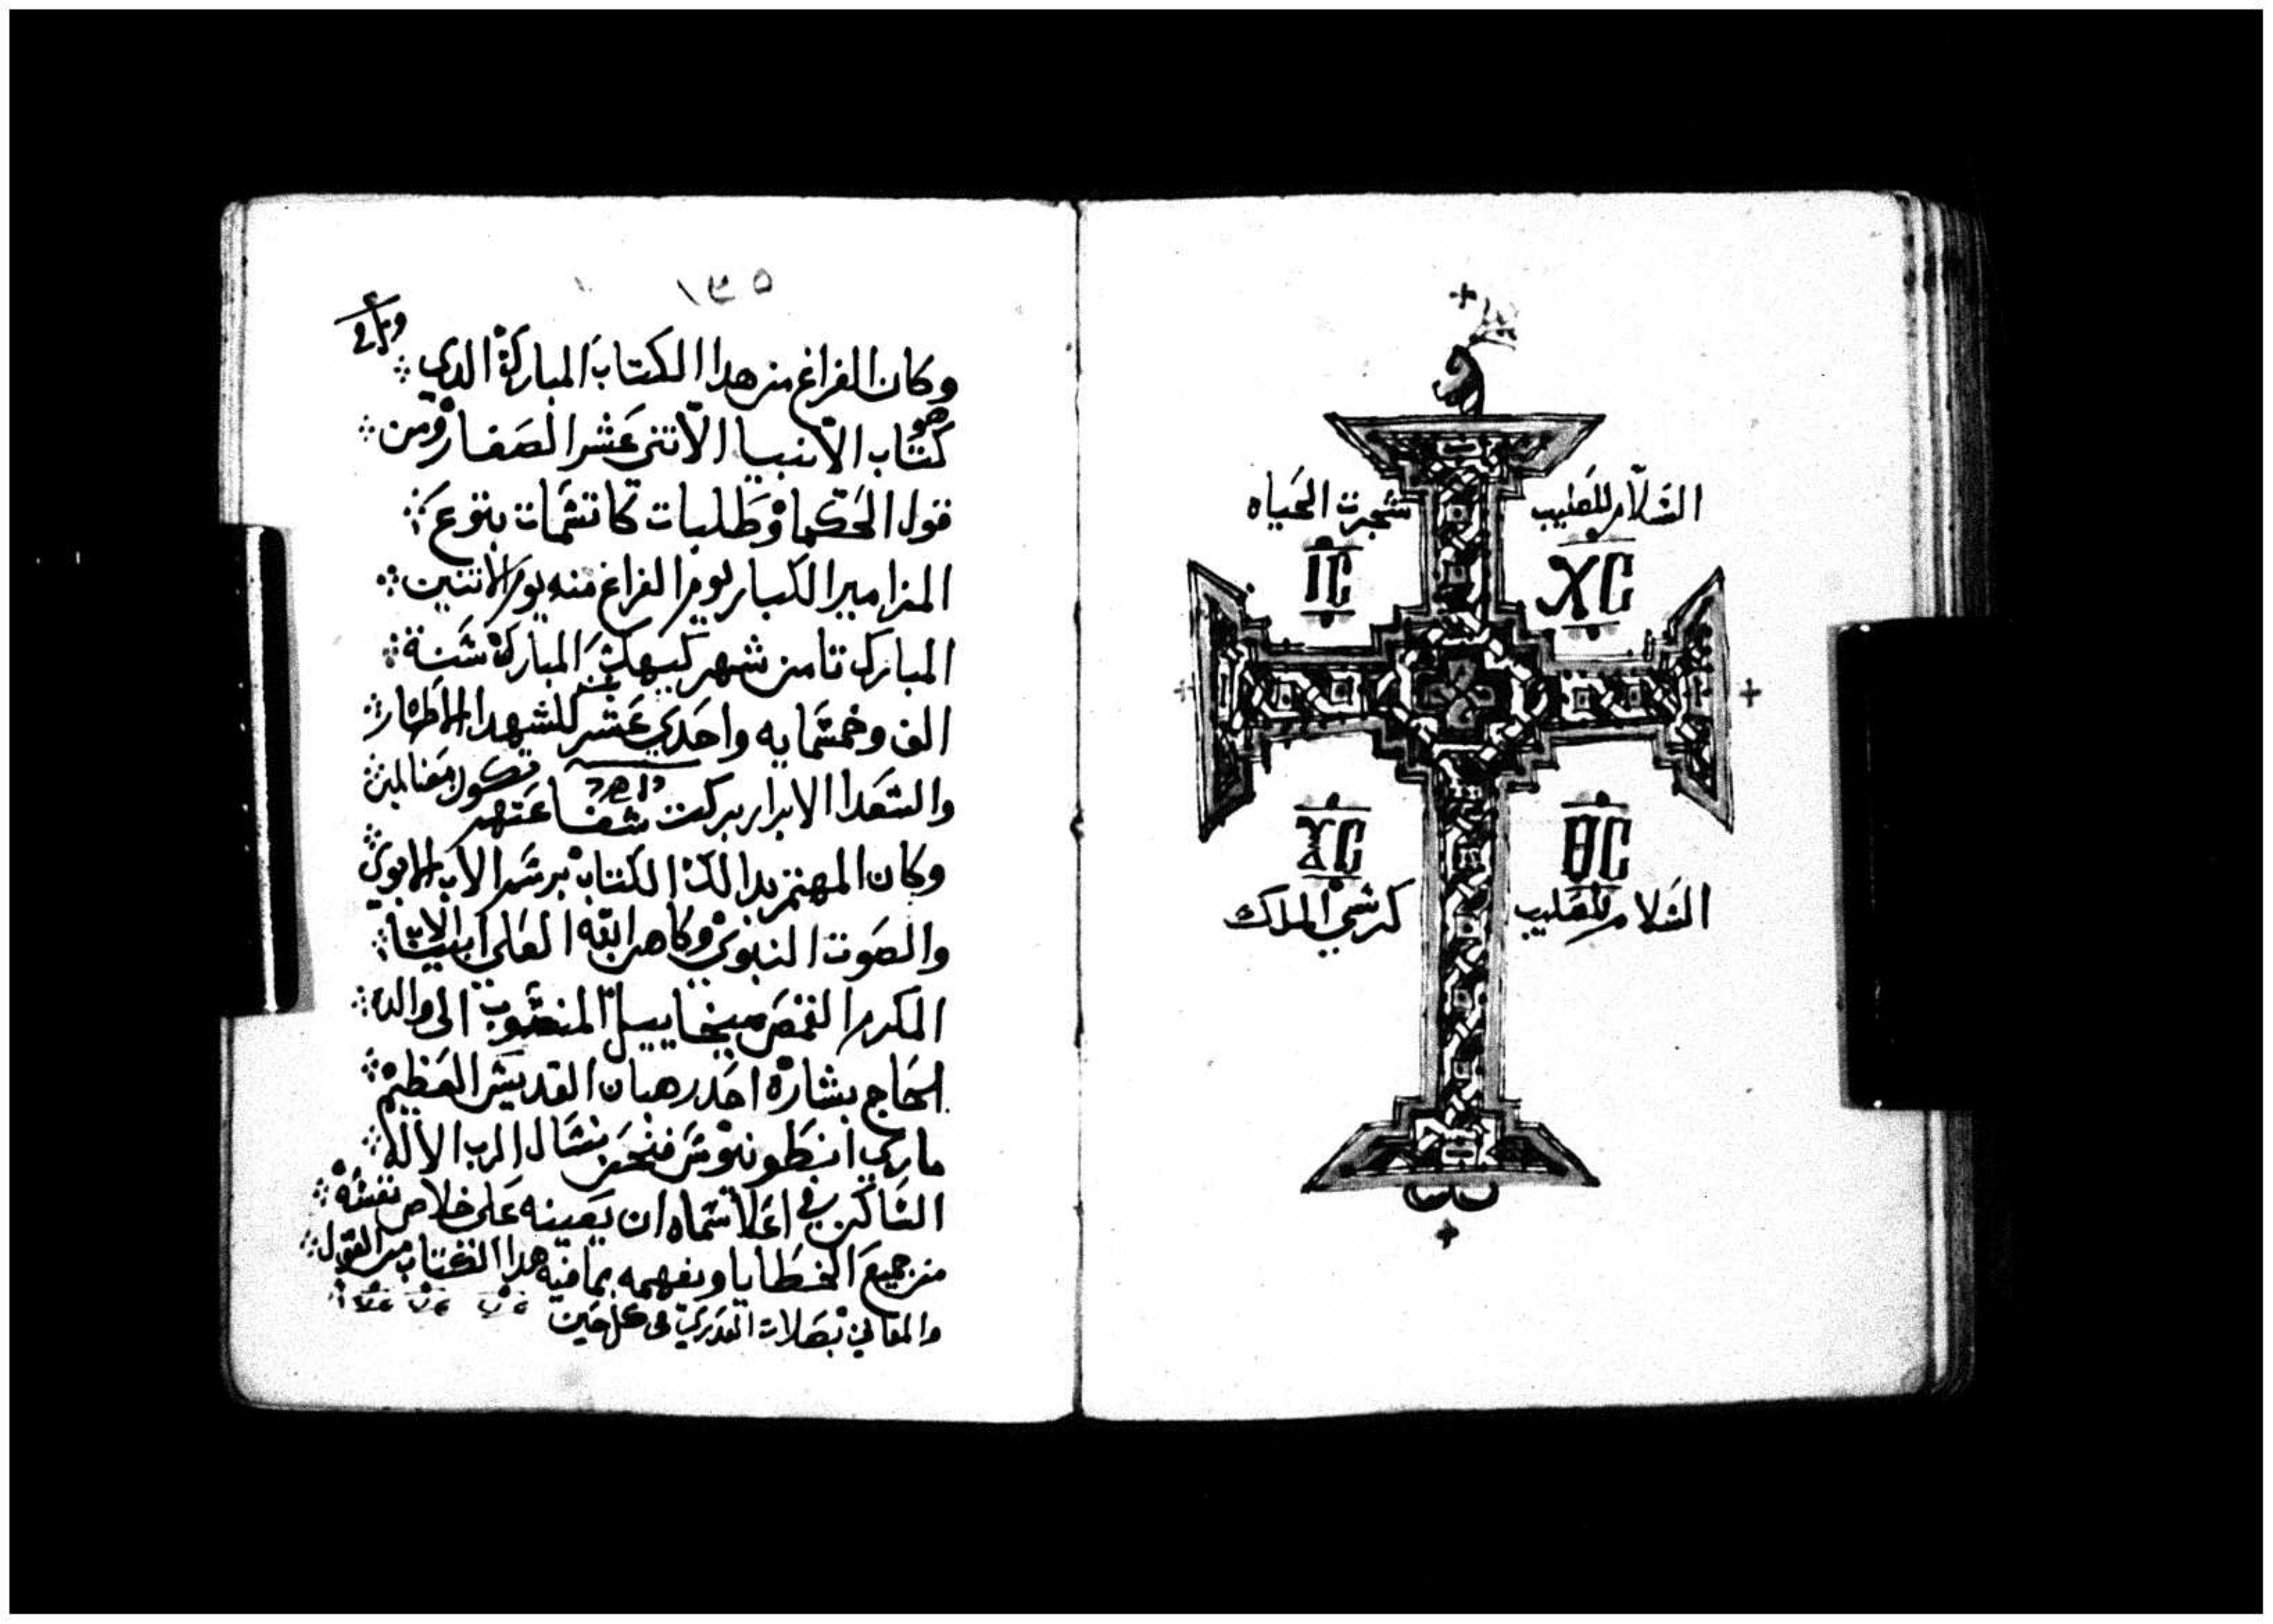 السَلام للصَليب شجرت الحَياه
IC XC
ⲨC ΘC
السَلام للصَليب كرسي الملك
١٣٥
وكان الفراغ من هدا الكتاب المبارك الدي
هو
كتاب الانبيا الاتني عَشر الصغار ومن
قول الحَكما وطَلبات كاتشمات بتوع
المزامير الكبار يوم الفراغ منه يوم الاتنين
المبارك تامن شهر كيهك المبارك سَنة
الف وخمسَمايه واحَدي عَشر للشهدا الاطهار
والسَعدا الابرار بركت شفاعَتهم تكون معَنا امين
وكان المهتم بدالك الكتاب برسَم الاب الابوي
والصَوت النبوي وكاهن الله العَلي ابينا
المكرم القمص ميخاييل المنسَوب الى والده
الحَاج بشاره احَد رهبان القديسَ العَظيم
ماري انطَونيوسَ فنحَن نسَال الرب الاله
السَاكن في اعَلا سَماه ان يَعينه عَلى خلاص نفسَه
من جميعَ الخطَايا ويفهمه بما فيه هدا الكتاب من القول
والمعَاني بصَلات العَدري في كل حَين